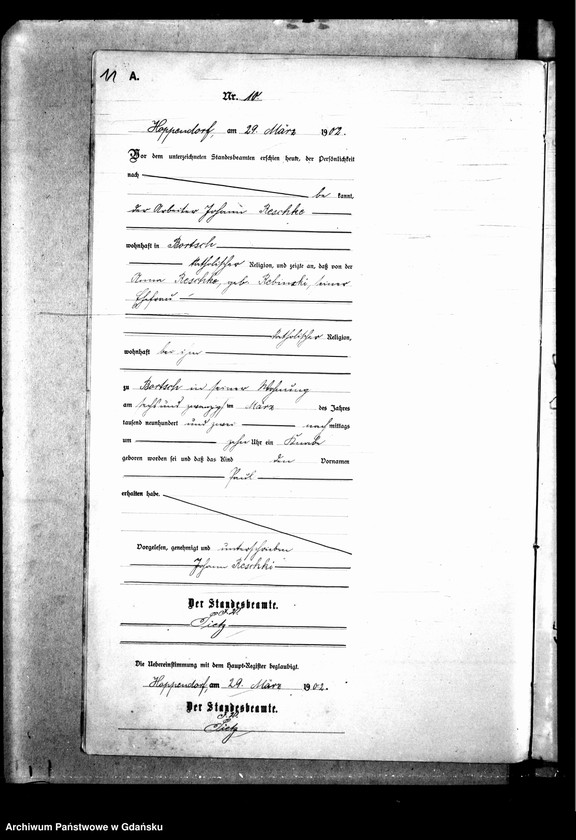 11 A.
Nr. 10.
Hoppendorf, am 29. März 1902.
Vor dem unterzeichneten Standesbeamten erschien heute, der Persönlichkeit
nach
be kannt,
der Arbeiter Johann Reschke
wohnhaft in Bortsch
katholischer Religion, und zeigte an, daß von der
Anna Reschke, geb. Rebinski, seiner
Ehefrau
katholischer Religion,
wohnhaft bei ihm
zu Bortsch in seiner Wohnung
am sechs und zwanzigsten März des Jahres
tausend neunhundert und zwei nach mittags
um zehn Uhr ein Knabe
geboren worden sei und daß das Kind den Vornamen
Paul
erhalten habe.
Vorgelesen, genehmigt und unterschrieben
Johann Reschki
Der Standesbeamte.
Tietz
Die Uebereinstimmung mit dem Haupt-Register beglaubigt.
Hoppendorf, am 29. März 1902.
Der Standesbeamte.
Tietz
Archiwum Państwowe w Gdańsku